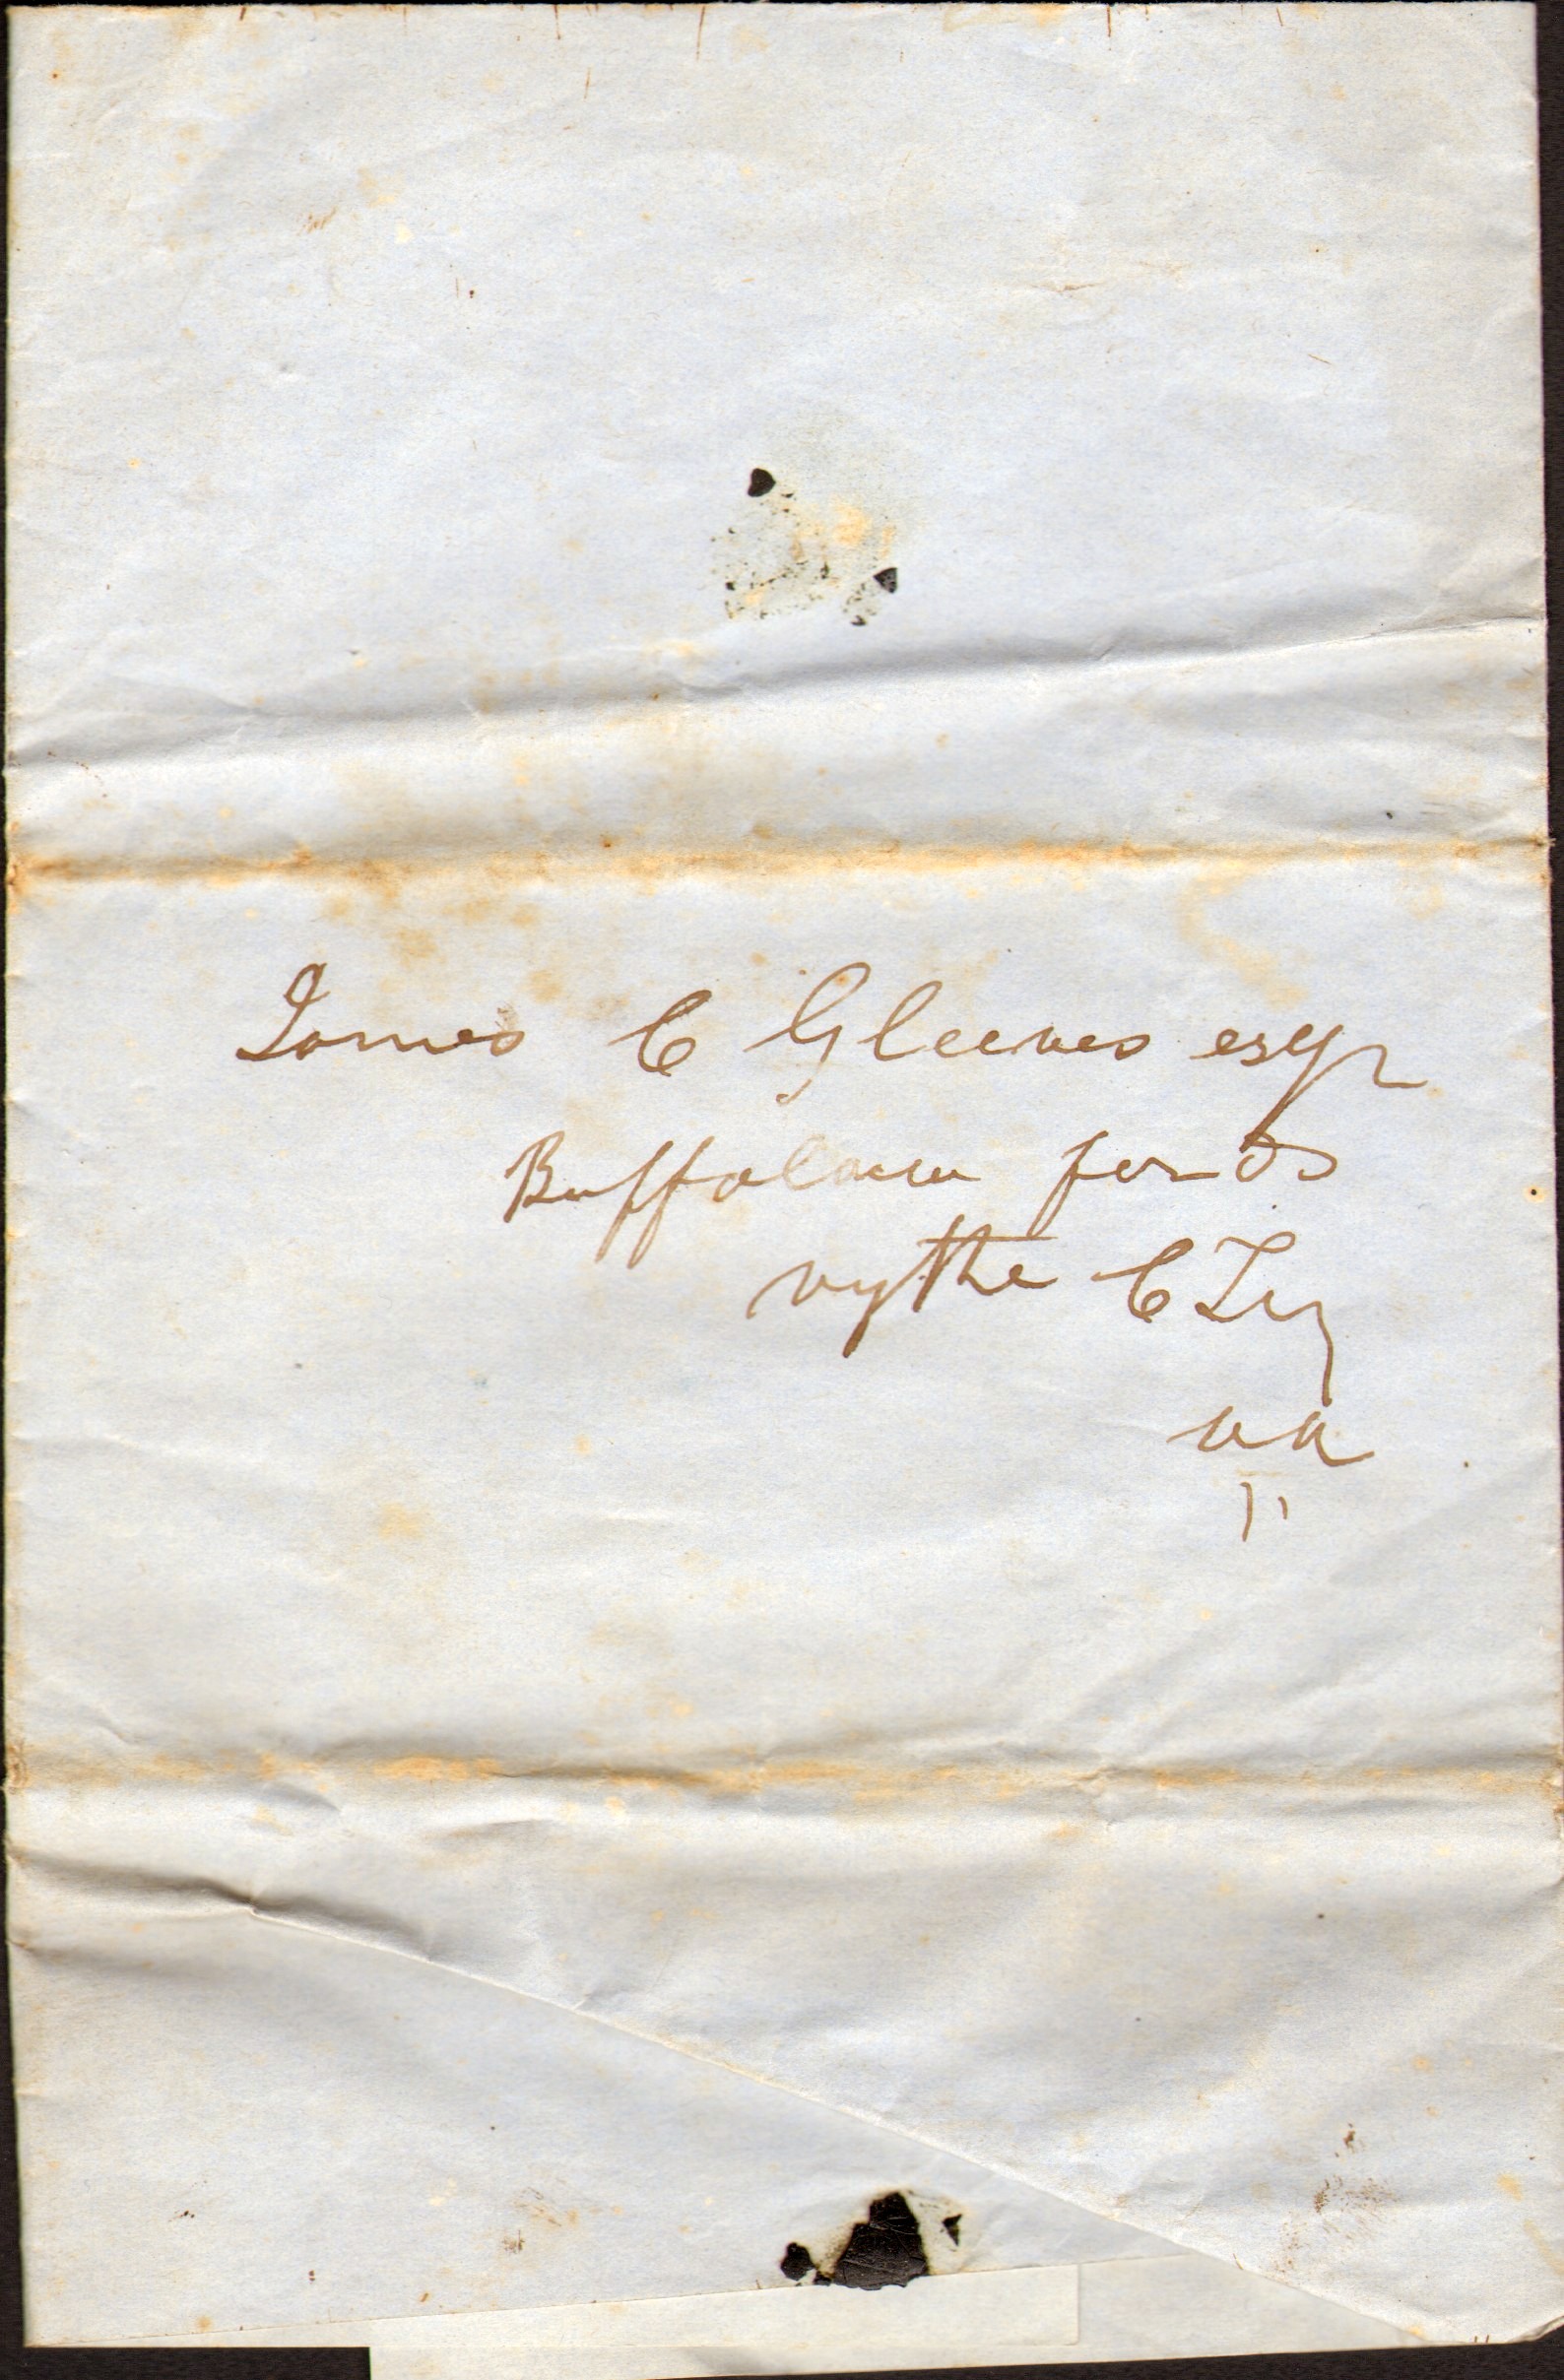 James C Gleeves esqr
Buffalow fords
wythe C Ty
va